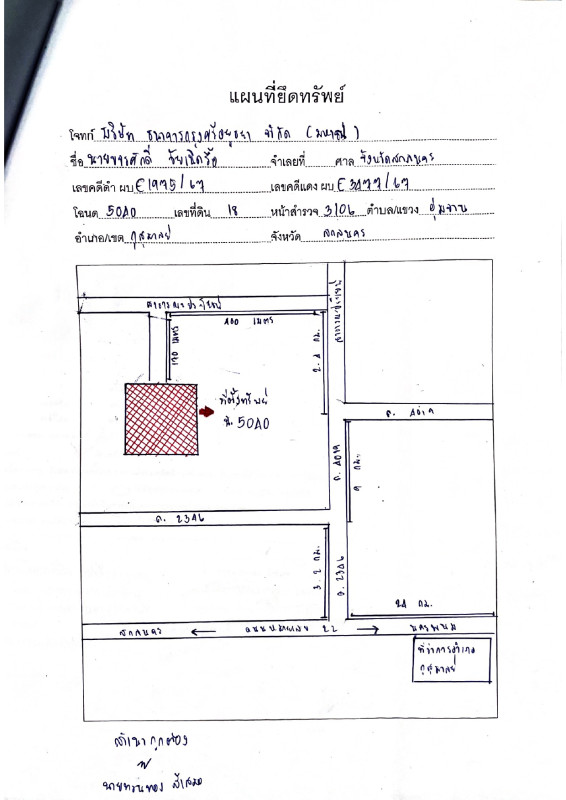 แผนที่ยึดทรัพย์
โจทก์ บริษัท ธนาคารกรุงศรีอยุธยา จำกัด (มหาชน)
ชื่อ จำเลยที่ ศาล จังหวัดสกลนคร
เลขคดีดำ ผบ E1975/67 เลขคดีแดง ผบ E3477/67
โฉนด 5040 เลขที่ดิน 18 หน้าสำรวจ 3106 ตำบล/แขวง อุ่มจาน
อำเภอ/เขต กุสุมาลย์ จังหวัด สกลนคร
สาธารณะประโยชน์
สาธารณะประโยชน์
400 เมตร
170 เมตร
2.4 กม.
ที่ตั้งทรัพย์
น. 5040
ถ. 4019
ถ. 4019
9 กม.
ถ. 2346
3.2 กม.
ถ. 2346
24 กม.
สกลนคร ← ถนนหมายเลข 22 → นครพนม
ที่ว่าการอำเภอ
กุสุมาลย์
สำเนาถูกต้อง